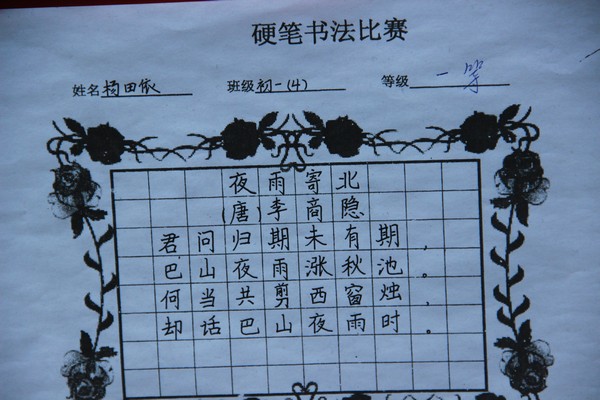 硬笔书法比赛
姓名杨田依 班级初一(4) 等级一等
夜雨寄北
(唐)李商隐
君问归期未有期,
巴山夜雨涨秋池。
何当共剪西窗烛,
却话巴山夜雨时。